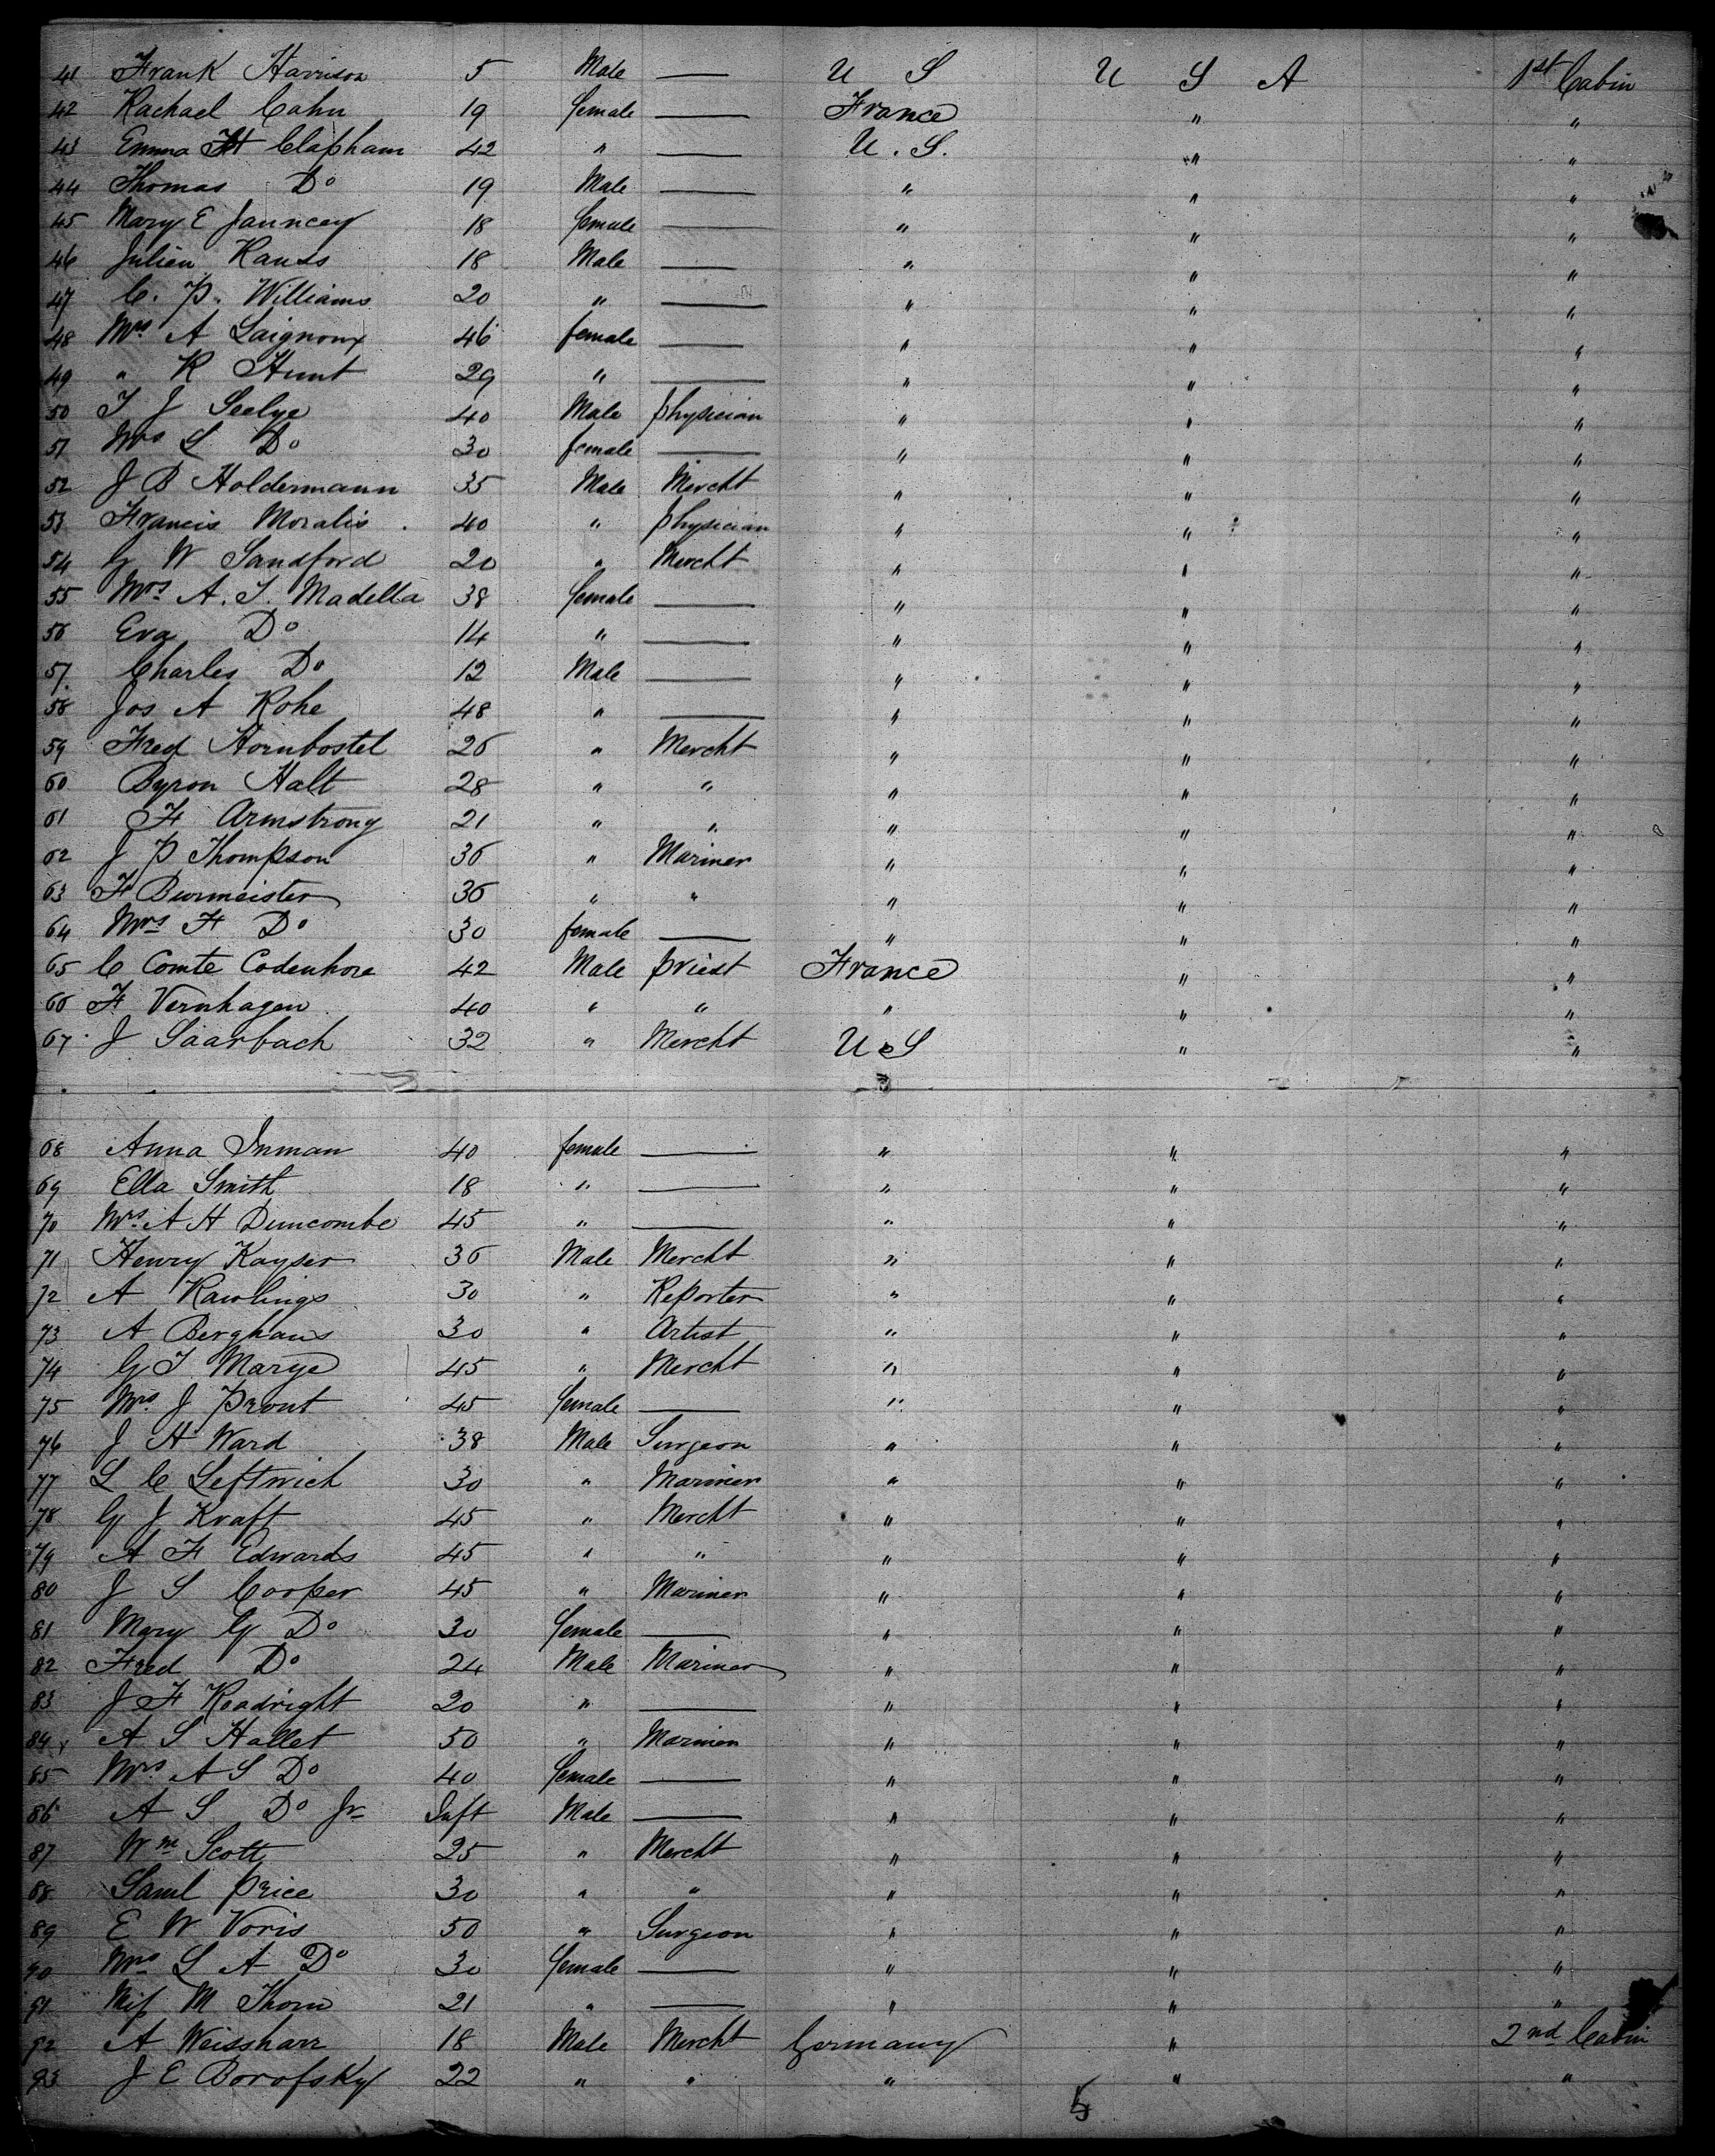 41 Frank Harrison 5 Male — U S U S A 1st Cabin
42 Rachael Cahn 19 female — France " "
43 Emma H Clapham 42 " — U.S. " "
44 Thomas Do 19 Male — " " "
45 Mary E Jauncey 18 female — " " "
46 Julien Kauss 18 Male — " " "
47 C. P. Williams 20 " — " " "
48 Mrs A Laignoux 46 female — " " "
49 " R Hunt 29 " — " " "
50 T J Seelye 40 Male physician " " "
51 Mrs L Do 30 female — " " "
52 J B Holdermann 35 Male Mercht " " "
53 Francis Moralis 40 " physician " " "
54 G W Sandford 20 " Mercht " " "
55 Mrs A. T. Madella 38 female — " " "
56 Eva Do 14 " — " " "
57 Charles Do 12 Male — " " "
58 Jos A Rohe 48 " — " " "
59 Fred Hornbostel 26 " Mercht " " "
60 Byron Halt 28 " " " " "
61 F Armstrong 21 " " " " "
62 J P Thompson 36 " Mariner " " "
63 F Burmeister 36 " " " " "
64 Mrs F Do 30 female — " " "
65 C Comte Codenhore 42 Male priest France " "
66 F Vernhagen 40 " " " " "
67 J Saarbach 32 " Mercht U S " "
68 Anna Inman 40 female — " " "
69 Ella Smith 18 " — " " "
70 Mrs A H Duncombe 45 " — " " "
71 Henry Kayser 36 Male Mercht " " "
72 A Rawlings 30 " Reporter " " "
73 A Berghaus 30 " Artist " " "
74 G T Marye 45 " Mercht " " "
75 Mrs J Prout 45 female — " " "
76 J H Ward 38 Male Surgeon " " "
77 L C Leftwich 30 " Mariner " " "
78 G J Kraft 45 " Mercht " " "
79 A F Edwards 45 " " " " "
80 J S Cooper 45 " Mariner " " "
81 Mary G Do 30 female — " " "
82 Fred Do 24 Male Mariner " " "
83 J F Readright 20 " — " " "
84 A S Hallet 50 " Mariner " " "
85 Mrs A S Do 40 female — " " "
86 A S Do Jr Inft Male — " " "
87 Wm Scott 25 " Mercht " " "
88 Saml Price 30 " " " " "
89 E W Voris 50 " Surgeon " " "
90 Mrs L A Do 30 female — " " "
91 Miss M Thorn 21 " — " " "
92 A Weissharr 18 Male Mercht Germany " 2nd Cabin
93 J E Borofsky 22 " " " " "
5